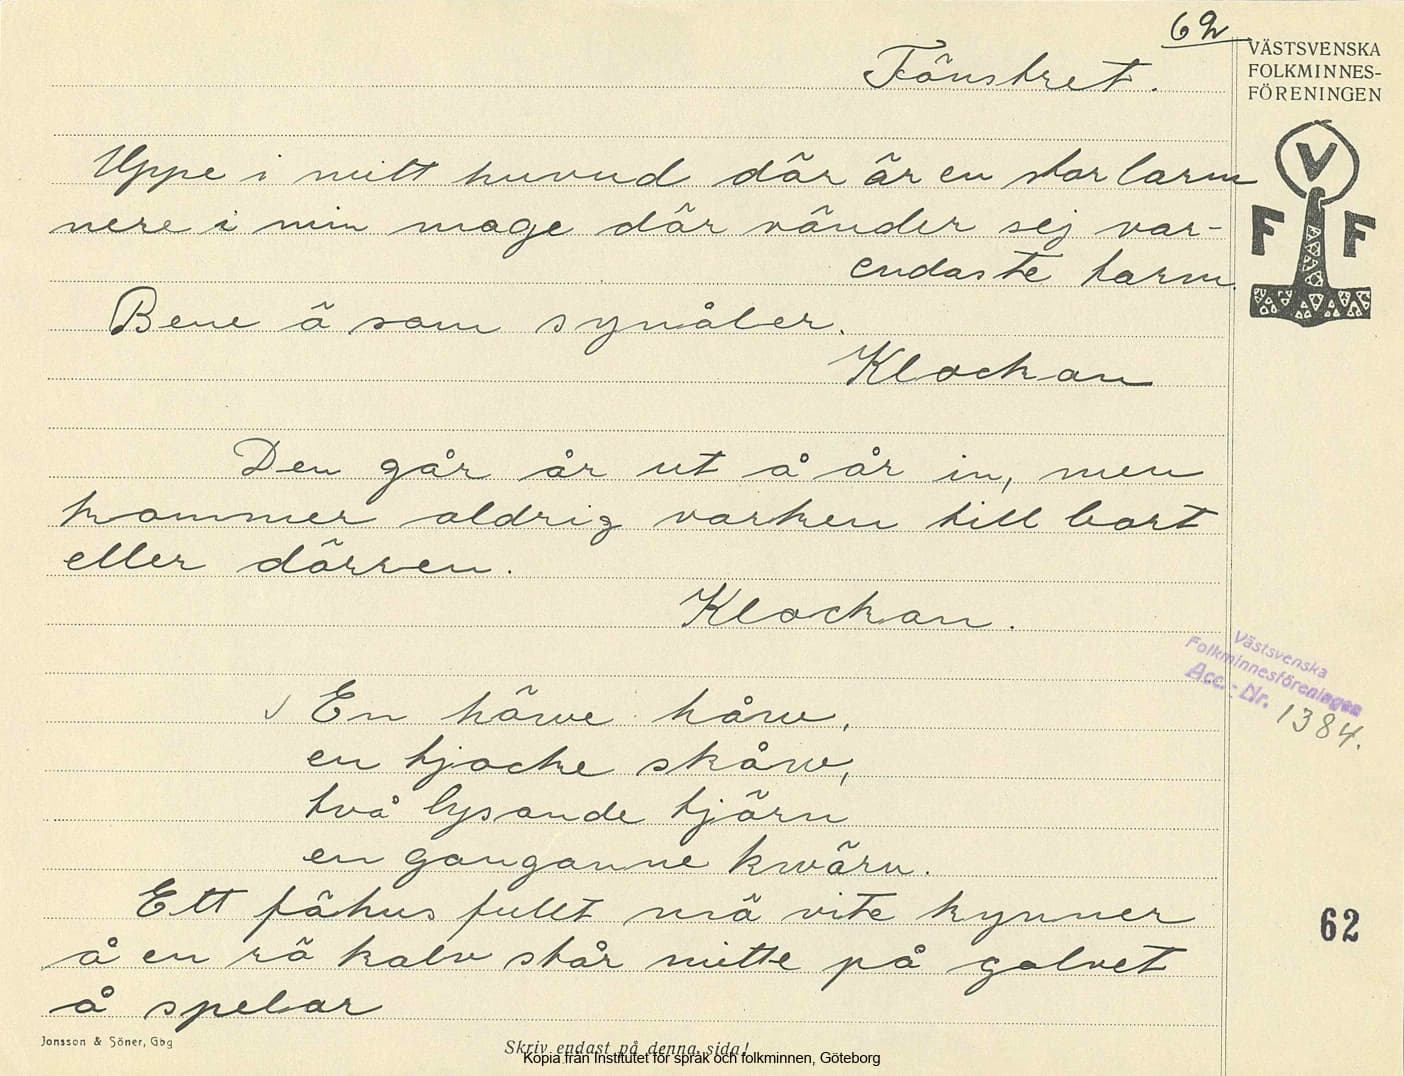 62
Fönstret.
VÄSTSVENSKA
FOLKMINNES-
FÖRENINGEN
V
F F
Uppe i mitt huvud där är en stor larm
nere i min mage där vänder sej var-
endaste tarm.
Bene ä som synåler.
Klockan
Den går år ut å år in, men
kommer aldrig varken till bort
eller dörren.
Klockan.
Västsvenska
Folkminnesföreningen
Acc.-Nr. 1384.
En härve hårv,
en tjocke skårv,
två lysande tjärn
en ganganne kwärn.
Ett fähus fullt mä vite kynner
å en rö kalv står mitte på golvet
å spelar
62
Jonsson & Söner, Gbg
Skriv endast på denna sida!
Kopia från Institutet för språk och folkminnen, Göteborg